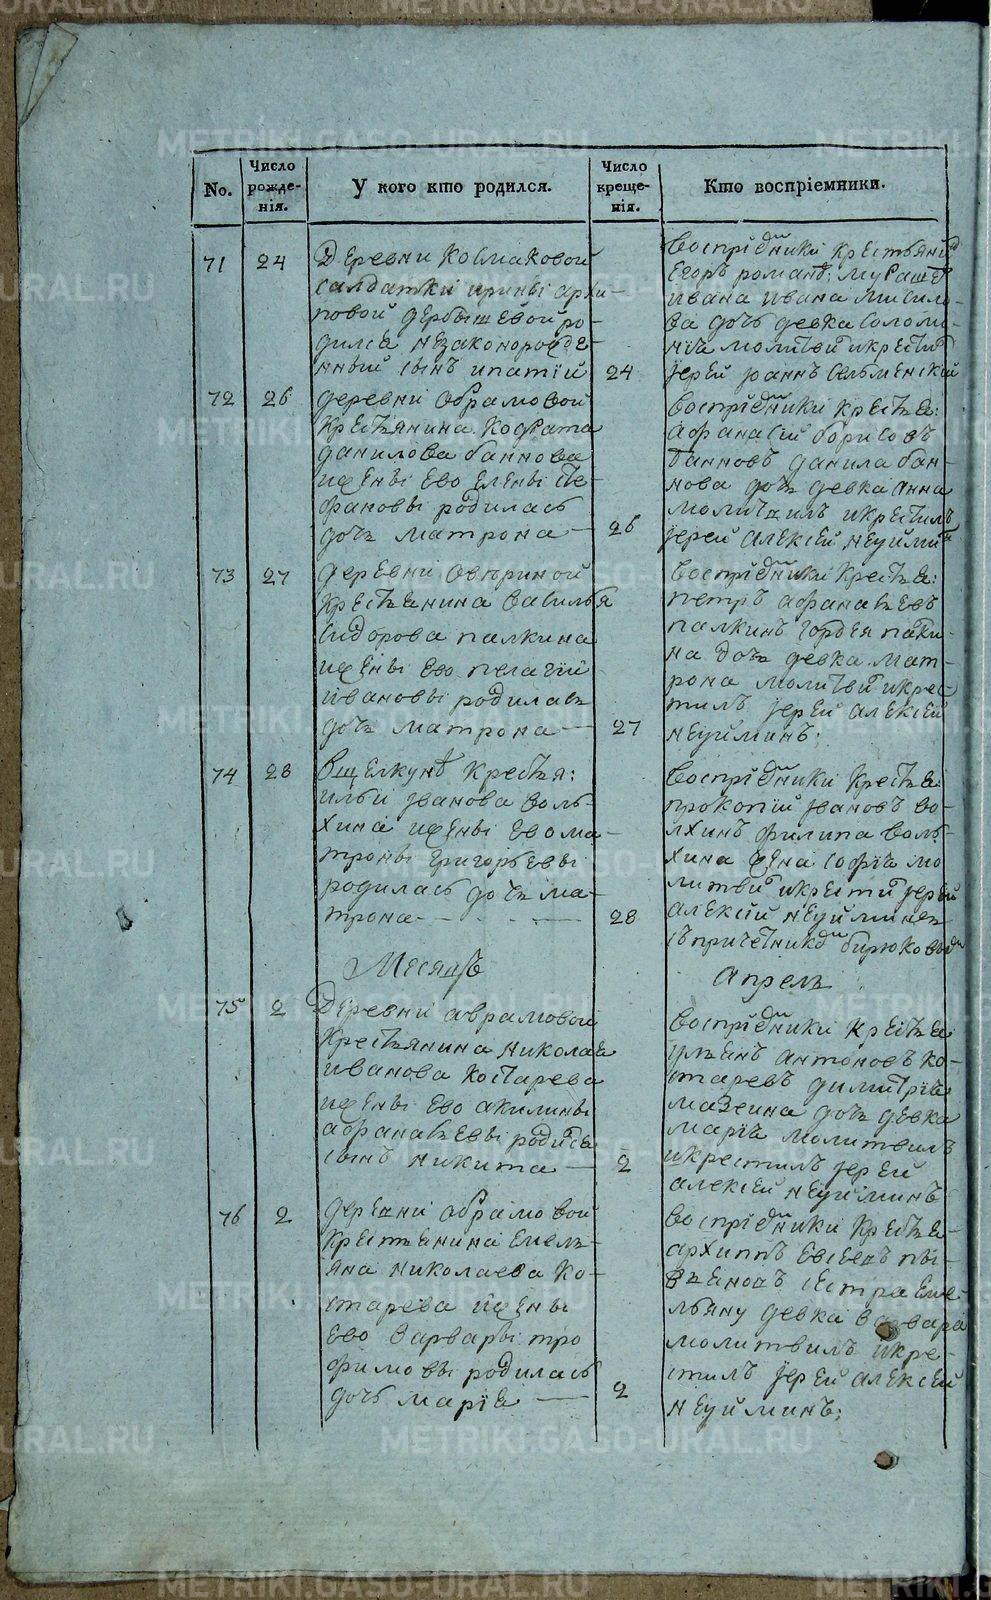 No.
Число рожде-
нія.
У кого кто родился.
Число креще-
нія.
Кто воспріемники.
71 24
деревни колмаковой
салдатки ирины архи-
повой дербышевой ро-
дился незаконорожде-
нный сынъ ипатій 24
воспріемники крестьяни
Егоръ роман
ивана ивана
ва дочь девка соломо-
нія молитви и крести
иерей иоаннъ
72 26
деревни абрамовой
крестьянина кодрата
данилова баннова
и жены Ево Елены сте-
фановы родилась
дочь матрона 26
воспріемники крестья:
афанасій борисовъ
банновъ данила бан-
нова дочь девка анна
молитвилъ и крестилъ
иерей алексей неуймин
73 27
деревни овериной
крестьянина василья
сидорова палкина
и жены Ево пелагии
ивановы родилась
дочь матрона 27
воспріемники крестья:
петръ афанасьевъ
палкинъ гордея палки-
на дочь девка мат-
рона молитви и крес-
тилъ иерей алексей
неуйминъ:
74 28
вщелкунѣ крестья:
ильи иванова воль-
хина и жены Ево ма-
троны григорьевы
родилась дочь ма-
трона 28
воспріемники крестья:
прокопій ивановъ во-
лхинъ филипа воль-
хина жена софія мо-
литви и крести иерей
алексій неуйминъ
съ причетник бирюковы
Месяцъ апрель
75 2
деревни аврамовой
крестьянина николая
иванова костарева
и жены Ево акилины
афанасьевы родился
сынъ никита 2
воспріемники крестья
антоновъ ко-
старевъ димитрія
мазеина дочь девка
марія молитвилъ
и крестилъ иерей
алексей неуйминъ
76 2
деревни абрамовой
крестьянина Емель-
яна николаева ко-
старева и жены
Ево варвары тро
фимовы родилась
дочь марія 2
воспріемники крестья-
архипъ Евсеевъ
сестра Еме-
льяну девка варвара
молитвилъ и кре-
стилъ иерей алексей
неуйминъ;
METRIKI.GASO-URAL.RU